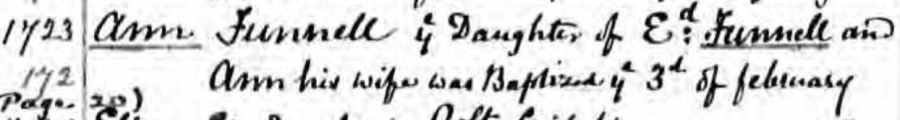 1723 Ann Funnell yᵉ Daughter of Eᵈ: Funnell and
172 Ann his wife was Baptized yᵉ 3ᵈ of february
Page. 20)